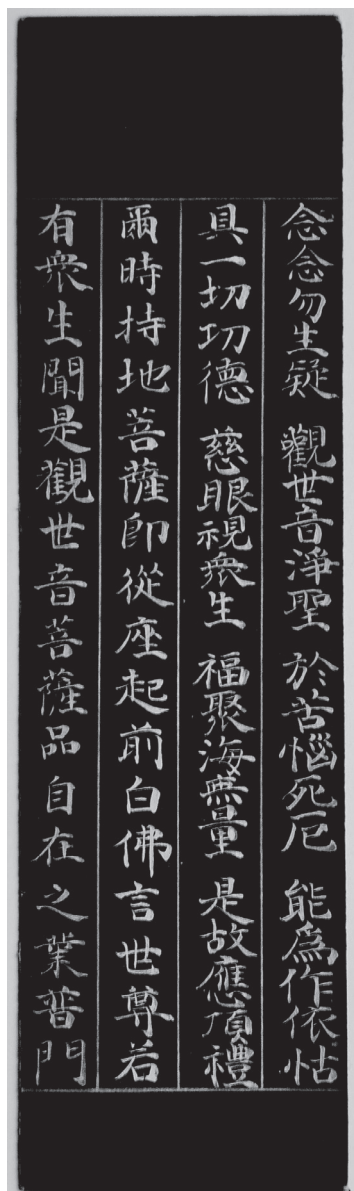 念念勿生疑 觀世音淨聖 於苦惱死厄 能為作依怙
具一切功德 慈眼視衆生 福聚海無量 是故應頂禮
爾時持地菩薩即從座起前白佛言世尊若
有衆生聞是觀世音菩薩品自在之業普門